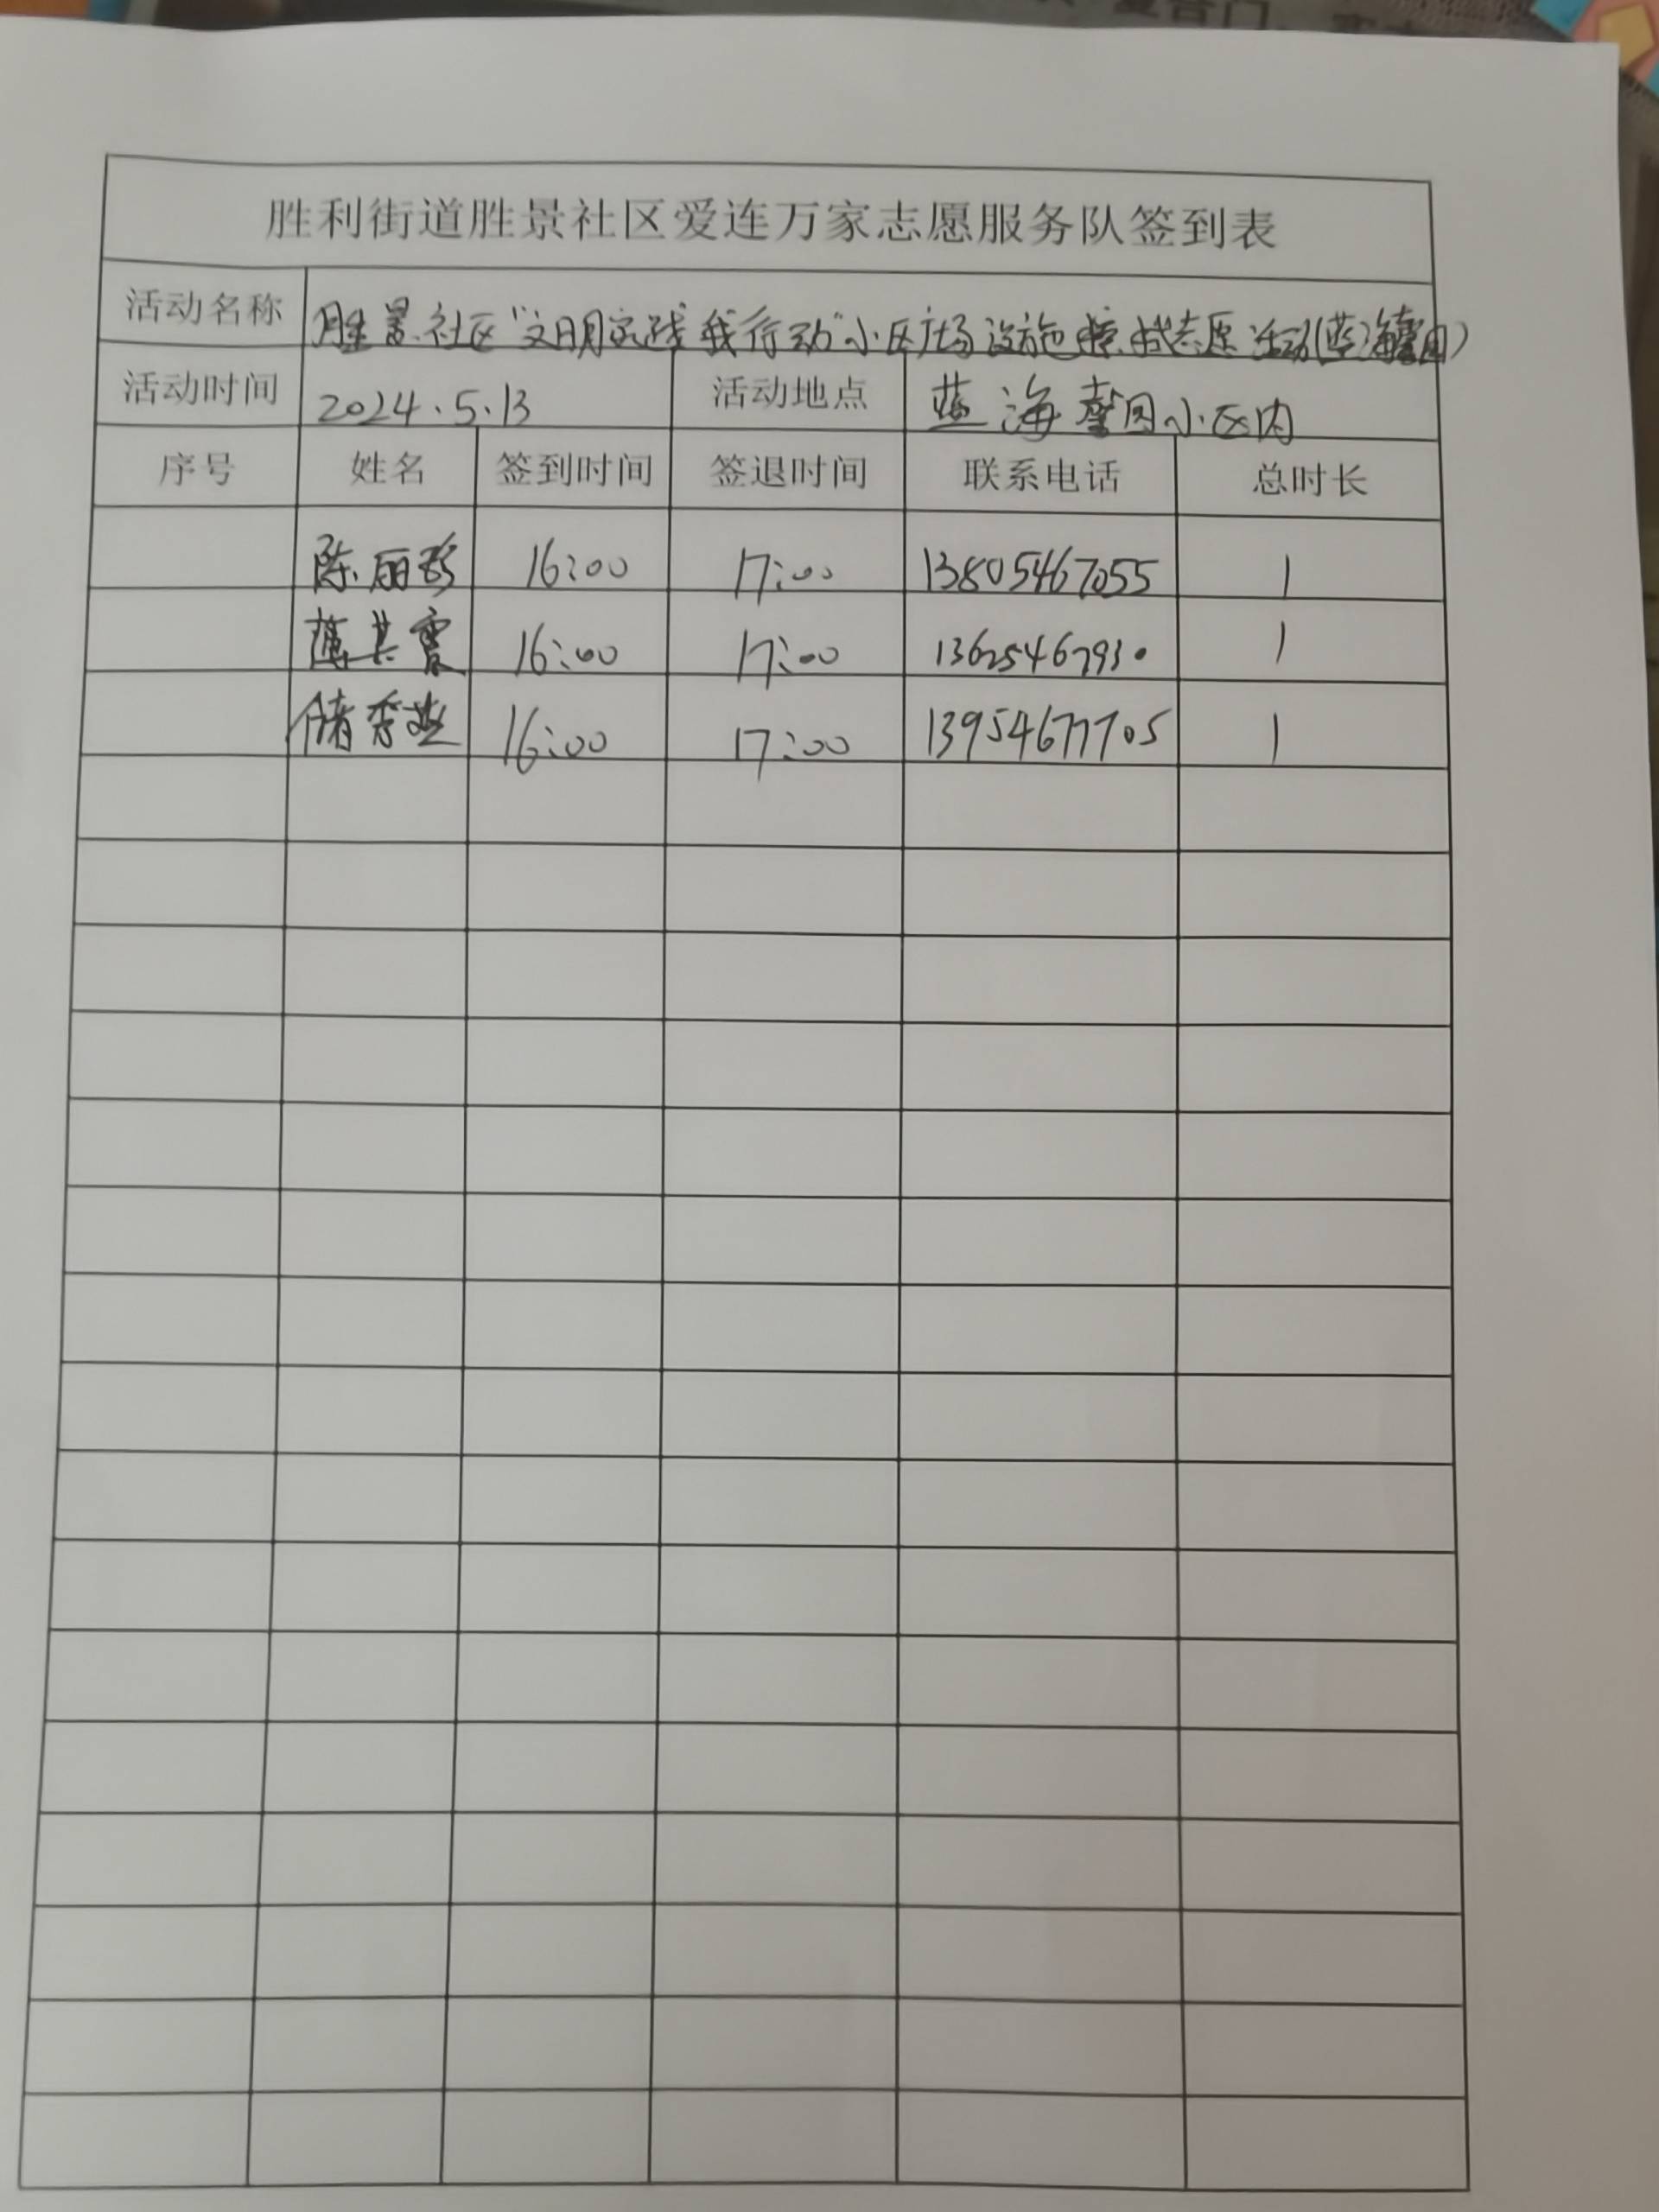 胜利街道胜景社区爱连万家志愿服务队签到表
活动名称 胜景社区"文明实践我行动"小区广场设施擦拭志愿活动(蓝海馨园)
活动时间 2024.5.13 活动地点 蓝海馨园小区内
序号 姓名 签到时间 签退时间 联系电话 总时长
陈丽珍 16:00 17:00 13805467055 1
16:00 17:00 13625467930 1
储秀燕 16:00 17:00 13954677705 1